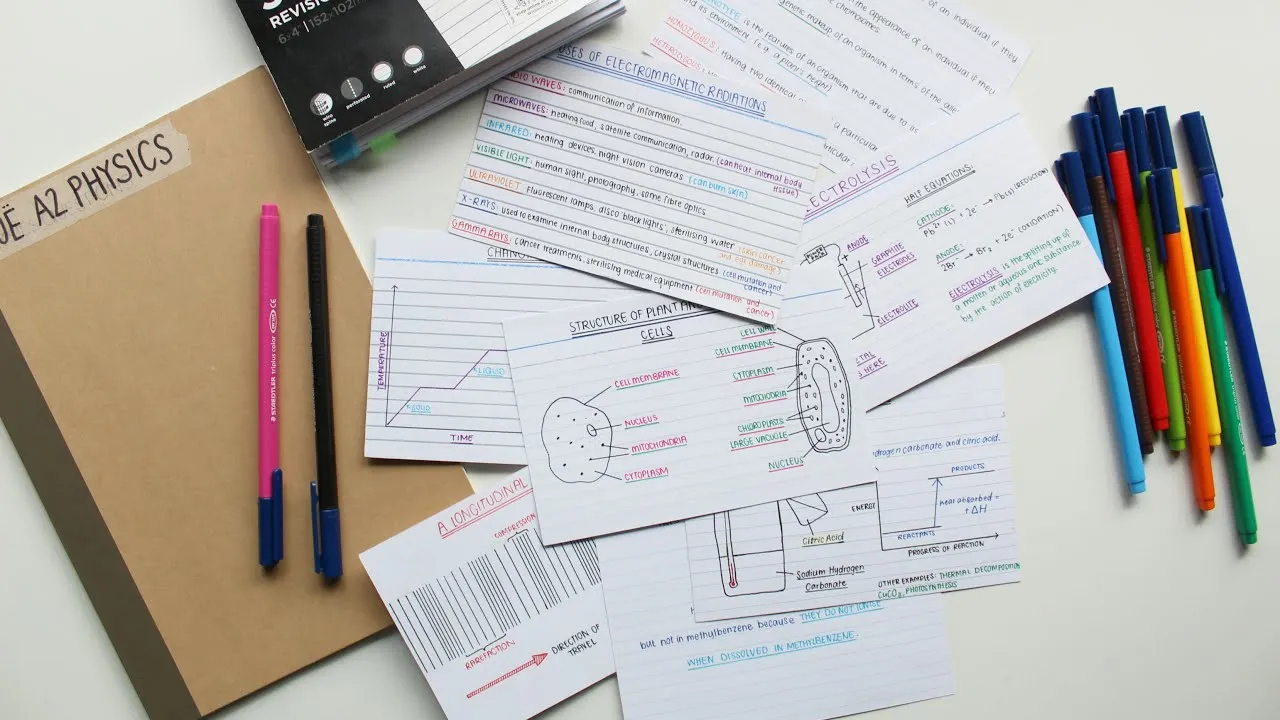 REVISION
6x4" | 152x102mm
wire spine
perforated
ruled
white
A2 PHYSICS
STAEDTLER triplus color CE
USES OF ELECTROMAGNETIC RADIATIONS
RADIO WAVES: communication of information.
MICROWAVES: heating food, satellite communication, radar (can heat internal body tissue)
INFRARED: heating devices, night vision cameras (can burn skin)
VISIBLE LIGHT: human sight, photography, some fibre optics.
ULTRAVIOLET: fluorescent lamps, disco 'black lights', sterilising water (skin cancer and eye damage)
X-RAYS: used to examine internal body structures, crystal structures (cell mutation and cancer)
GAMMA RAYS: cancer treatments, sterilising medical equipment (cell mutation and cancer)
the appearance of an individual if they
genetic makeup of an organism in terms of the
the features of an organism that are due to
and its environment (e.g. a plant's height)
HOMOZYGOUS: Having two identical
particular
ECTROLYSIS
HALF EQUATIONS:
CATHODE:
Pb²⁺ (l) + 2e⁻ → Pb(l) (REDUCTION)
ANODE:
2Br⁻ → Br₂ + 2e⁻ (OXIDATION)
ELECTROLYSIS is the splitting up of
a molten or aqueous ionic substance
by the action of electricity.
ANODE
GRAPHITE ELECTRODE
ELECTROLYTE
HERE
TEMPERATURE
SOLID
LIQUID
TIME
STRUCTURE OF PLANT
CELLS
CELL MEMBRANE
NUCLEUS
MITOCHONDRIA
CYTOPLASM
CELL WALL
CELL MEMBRANE
CYTOPLASM
MITOCHONDRIA
CHLOROPLASTS
LARGE VACUOLE
NUCLEUS
A LONGITUDINAL
COMPRESSION
RAREFACTION
DIRECTION OF
TRAVEL
drogen carbonate and citric acid.
ENERGY
PRODUCTS
heat absorbed =
+ΔH
REACTANTS
PROGRESS OF REACTION
Citric Acid
Sodium Hydrogen
Carbonate
OTHER EXAMPLES: THERMAL DECOMPOSITION
CuCO₃, PHOTOSYNTHESIS
but not in methylbenzene because THEY DO NOT IONISE
WHEN DISSOLVED IN METHYLBENZENE.